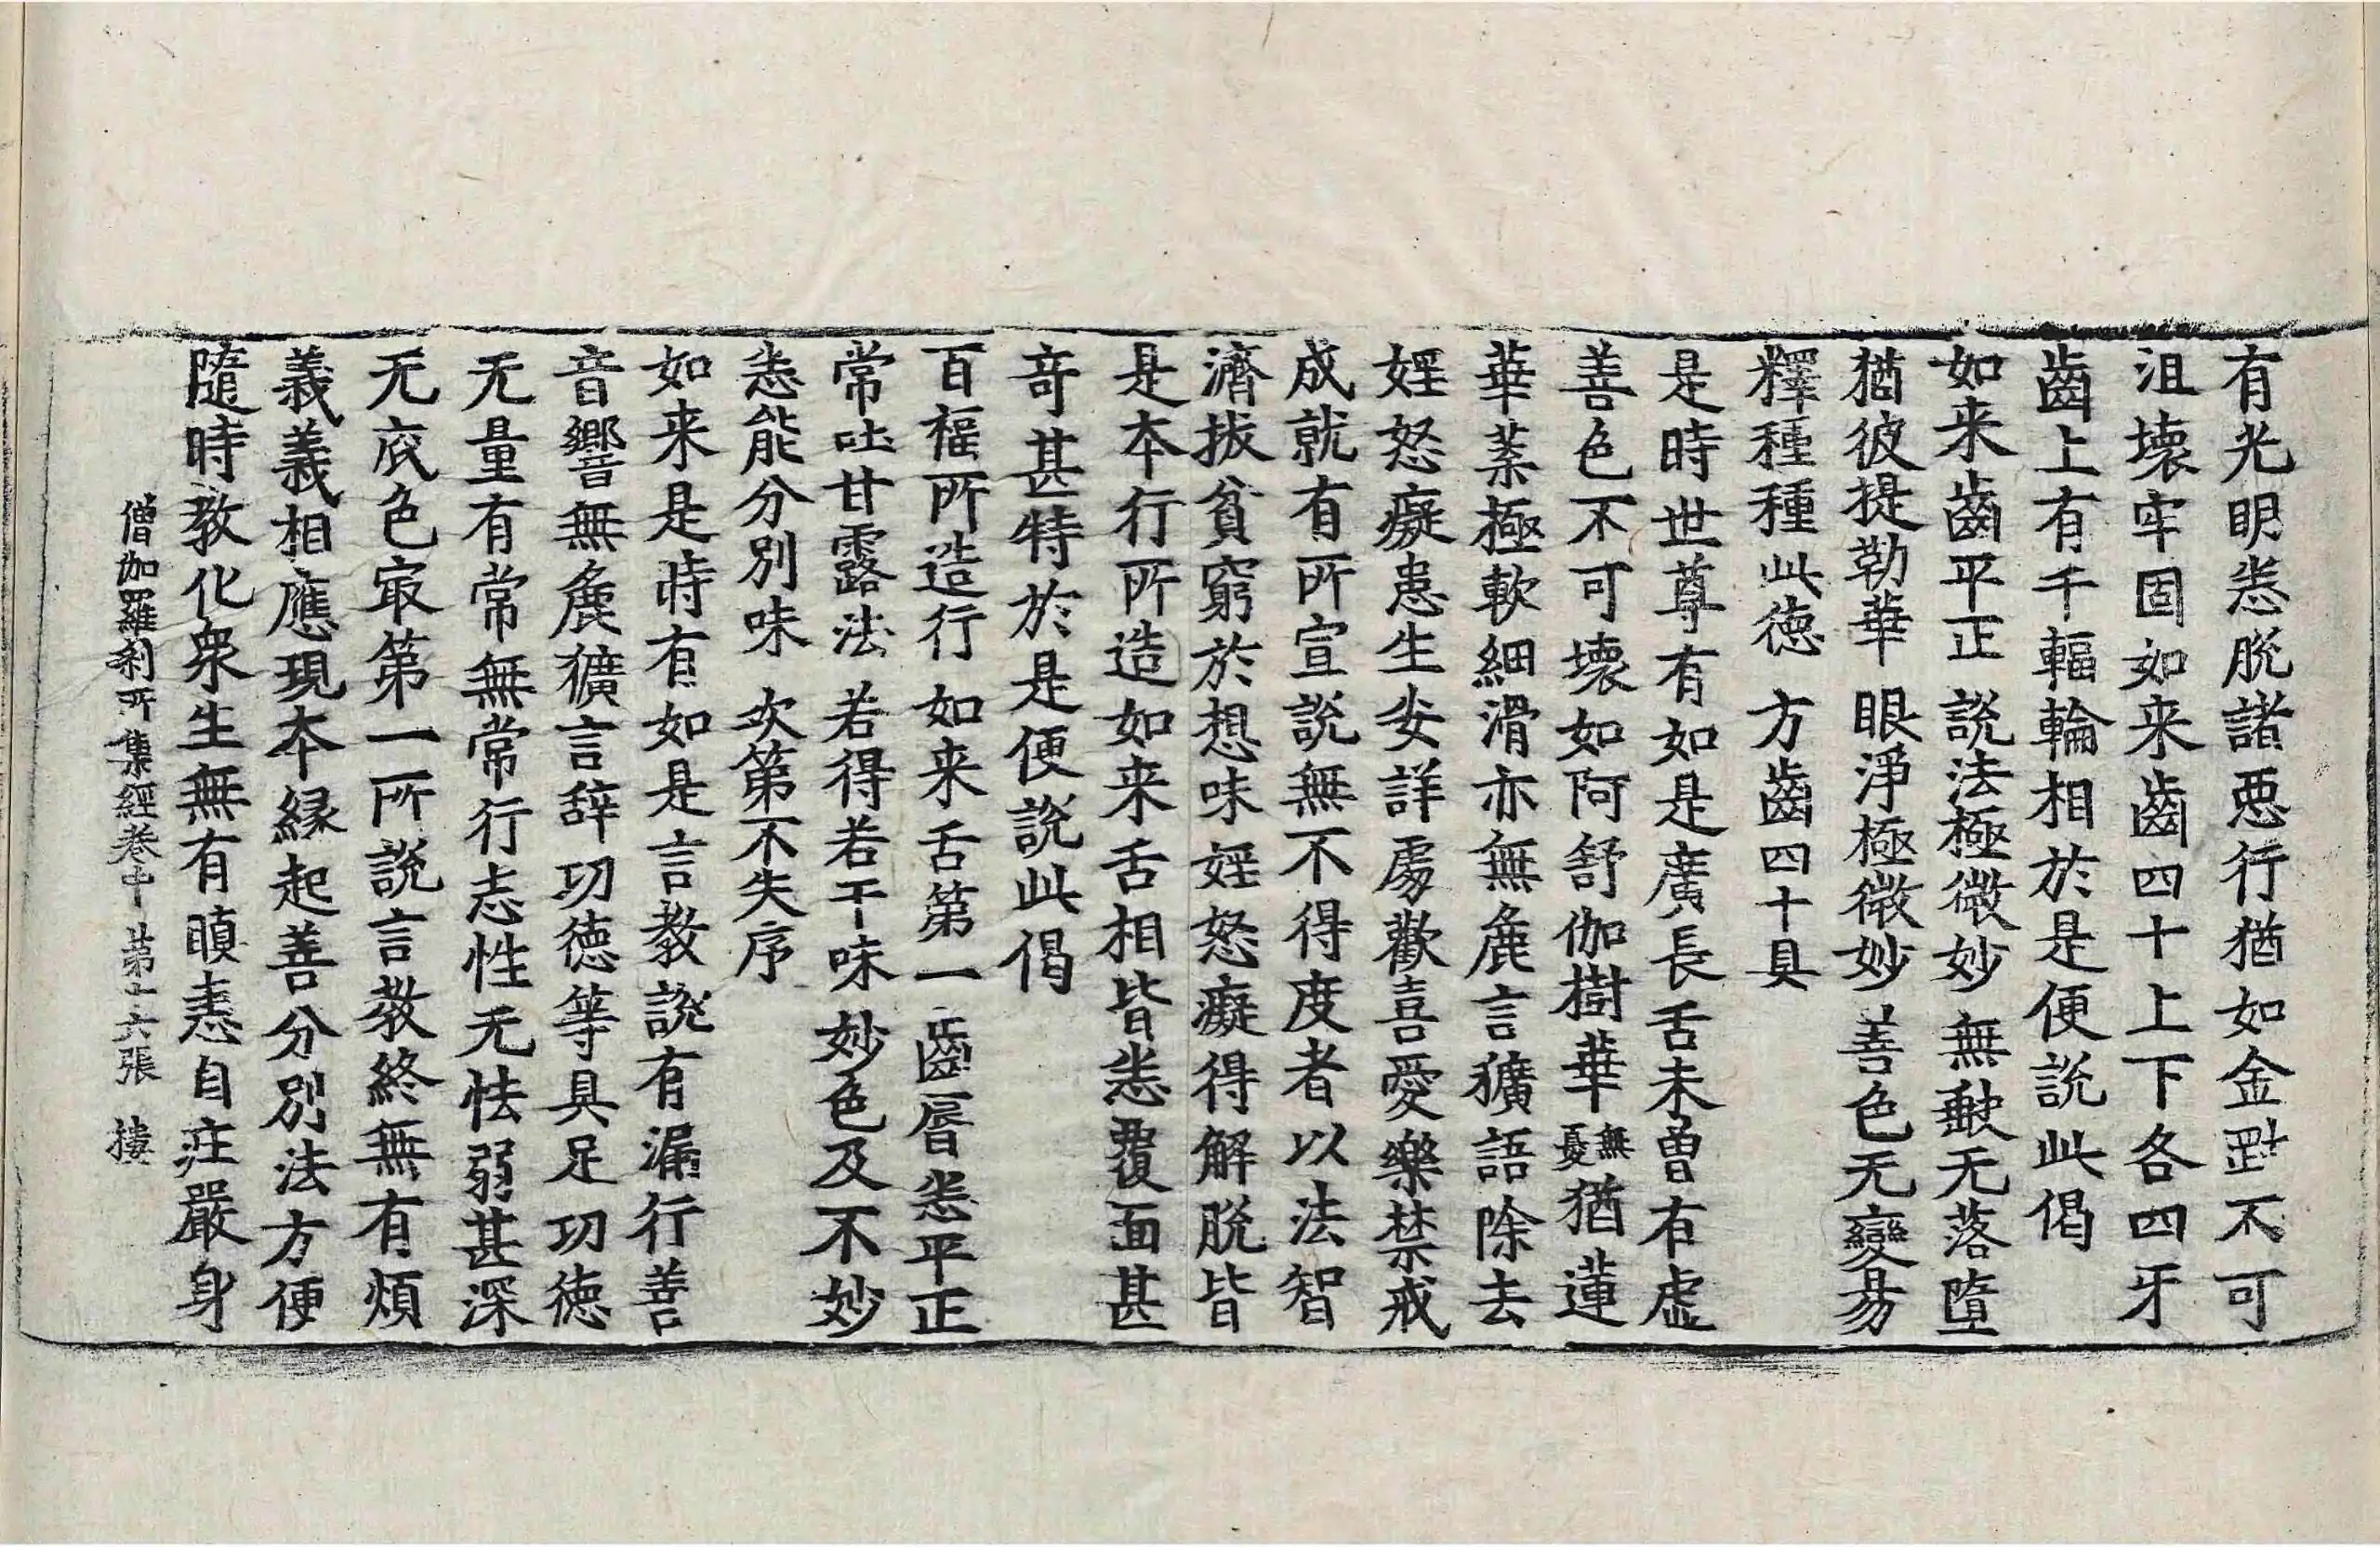 有光明恙脫諸惡行猶如金𡾟不可
沮壞牢固如来齒四十上下各四牙
齒上有千輻輪相於是便說此偈
如来齒平正 說法極微妙 無𪘏无落墮
猶彼提勒華 眼淨極微妙 善色无變昜
釋種種此德 方齒四十具
是時世尊有如是廣長舌未曾有虛
善色不可壞如阿舒伽樹華無憂猶蓮
華葉極軟細滑亦無麁言獷語除去
婬怒癡患生安詳處歡喜愛樂禁戒
成就有所宣說無不得度者以法智
濟拔貧窮於想味婬怒癡得解脫皆
是本行所造如来舌相皆恙覆面甚
奇甚特於是便說此偈
百福所造行 如来舌第一 齒脣恙平正
常吐甘露法 若得若干味 妙色及不妙
恙能分別味 次第不失序
如来是時有如是言教說有漏行善
音響無麁獷言辞功德等具足功德
无量有常無常行志性无怯弱甚深
无底色㝡第一所說言教終無有煩
義義相應現本緣起善分別法方便
隨時教化衆生無有瞋恚自莊嚴身
僧伽羅刹所集經卷中 第十六張 樓